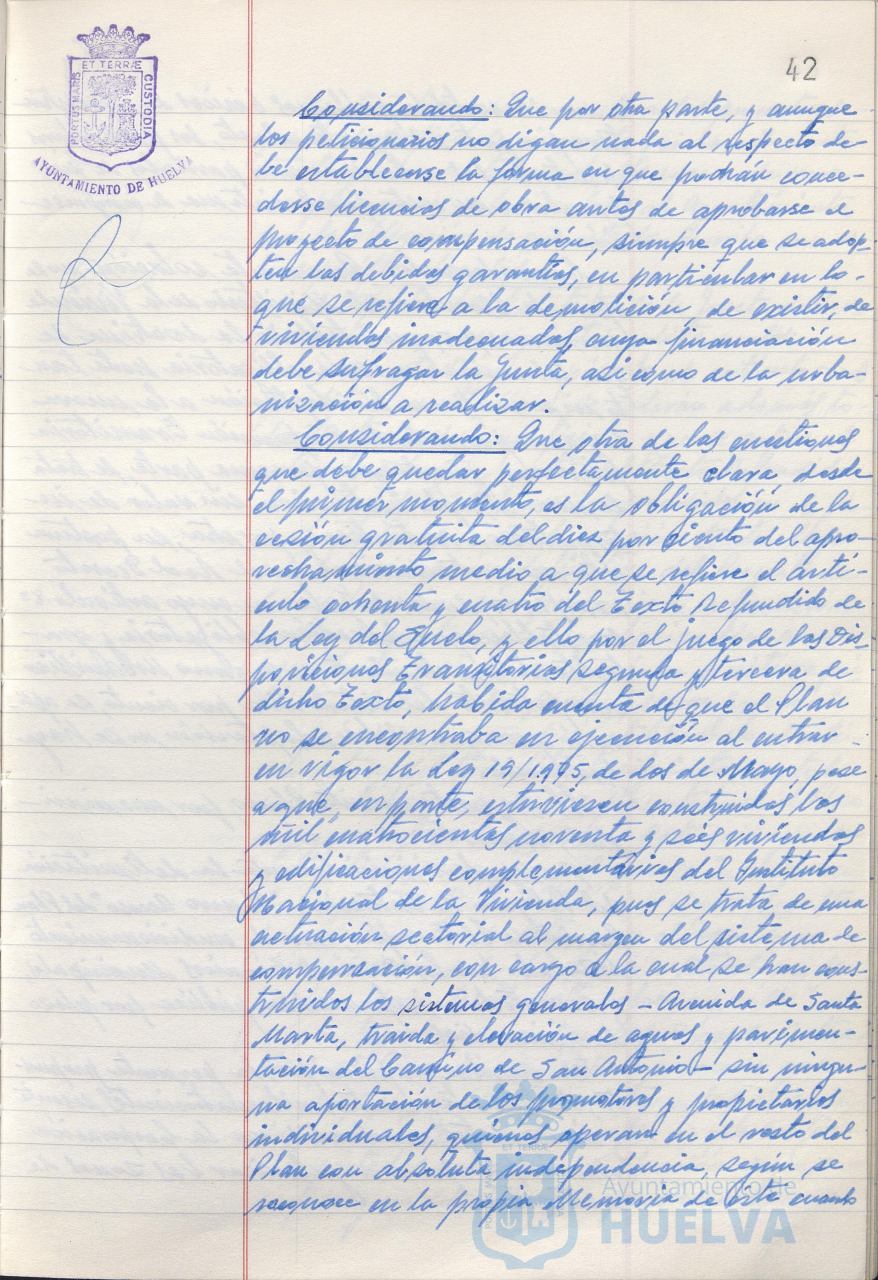 42
ET TERRÆ
PORTUS MARIS
CUSTODIA
AYUNTAMIENTO DE HUELVA
Considerando: Que por otra parte, y aunque
los peticionarios no digan nada al respecto de-
be establecerse la forma en que podrán conce-
derse licencias de obra antes de aprobarse el
proyecto de compensación, siempre que se adop-
ten las debidas garantías, en particular en lo-
que se refiere a la demolición, de existir, de
viviendas inadecuadas, cuya financiación
debe sufragar la Junta, así como de la urba-
nización a realizar.
Considerando: Que otra de las cuestiones
que debe quedar perfectamente clara desde
el primer momento, es la obligación de la
cesión gratuita del diez por ciento del apro-
vechamiento medio a que se refiere el artí-
culo ochenta y cuatro del Texto Refundido de
la Ley del Suelo, y ello por el juego de las Dis-
posiciones Transitorias segunda y tercera de
dicho Texto, habida cuenta de que el Plan
no se encontraba en ejecución al entrar-
en vigor la Ley 19/1.975, de dos de Mayo, pese
a que, en parte, estuviesen construidos las
mil cuatrocientas noventa y seis viviendas
y edificaciones complementarias del Instituto
Nacional de la Vivienda, pues se trata de una
actuación sectorial al margen del sistema de
compensación, con cargo a la cual se han cons-
truidos los sistemas generales - Avenida de Santa
Marta, traida y elevación de aguas y pavimen-
tación del Camino de San Antonio - sin ningu-
na aportación de los promotores y propietarios
individuales, quienes operan en el resto del
Plan con absoluta independencia, según se
reconoce en la propia Memoria de éste cuando
ET TERRÆ
Ayuntamiento de
HUELVA